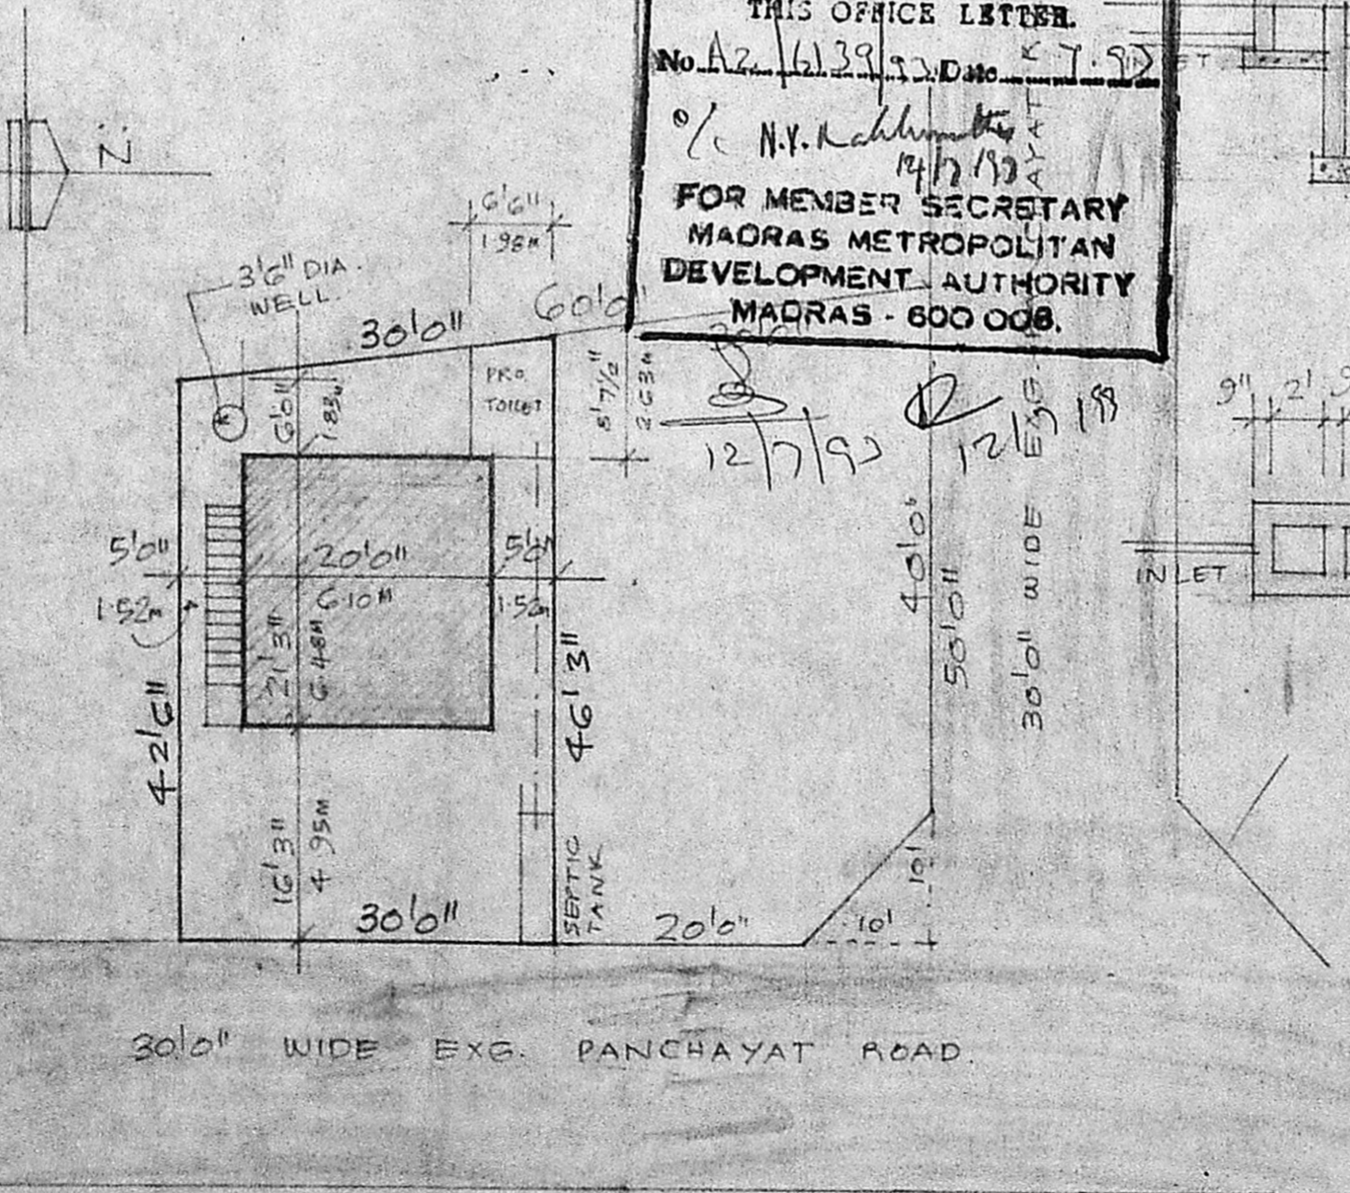 THIS OFFICE LETTER.
No A2/6139/93 Date 7.93
N.Y.
14/7/93
FOR MEMBER SECRETARY
MADRAS METROPOLITAN
DEVELOPMENT AUTHORITY
MADRAS - 600 008.
N
6'6"
1.98M
3'6" DIA.
WELL.
30'0"
60'0"
6'0"
1.83M
PRO.
TOILET
8'7½"
2.63M
12/7/93
12/7/93
9"
2'
5'0"
1.52M
20'0"
6.10M
5'0"
1.52M
21'3"
6.48M
42'6"
46'3"
40'0"
50'0"
30'0" WIDE EXG.
INLET
INLET
16'3"
4.95M
30'0"
SEPTIC
TANK
20'0"
10'
10'
30'0" WIDE EXG. PANCHAYAT ROAD.